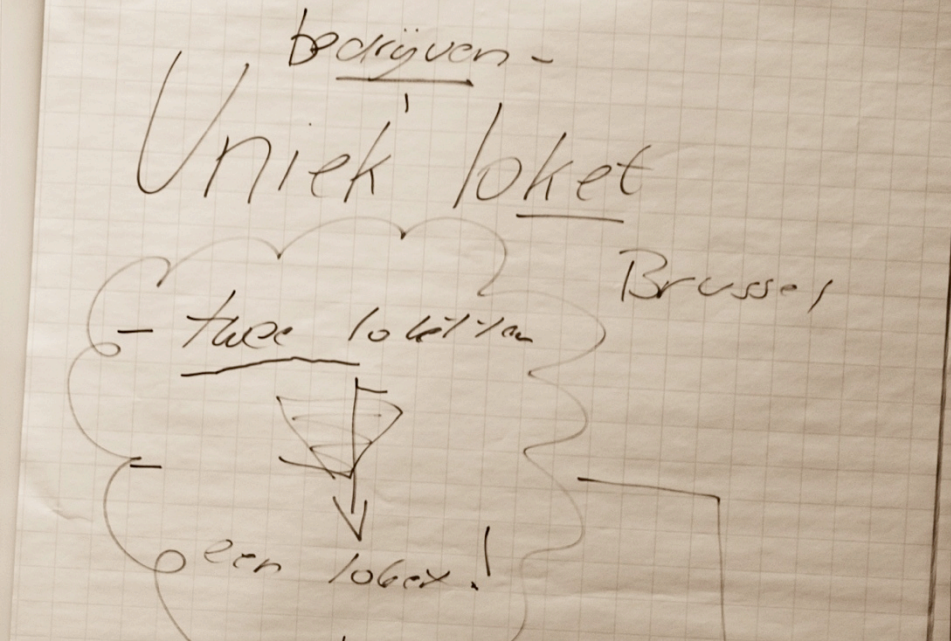 bedrijven -
Uniek loket
Brussel
- twee loketten
-
een loket!